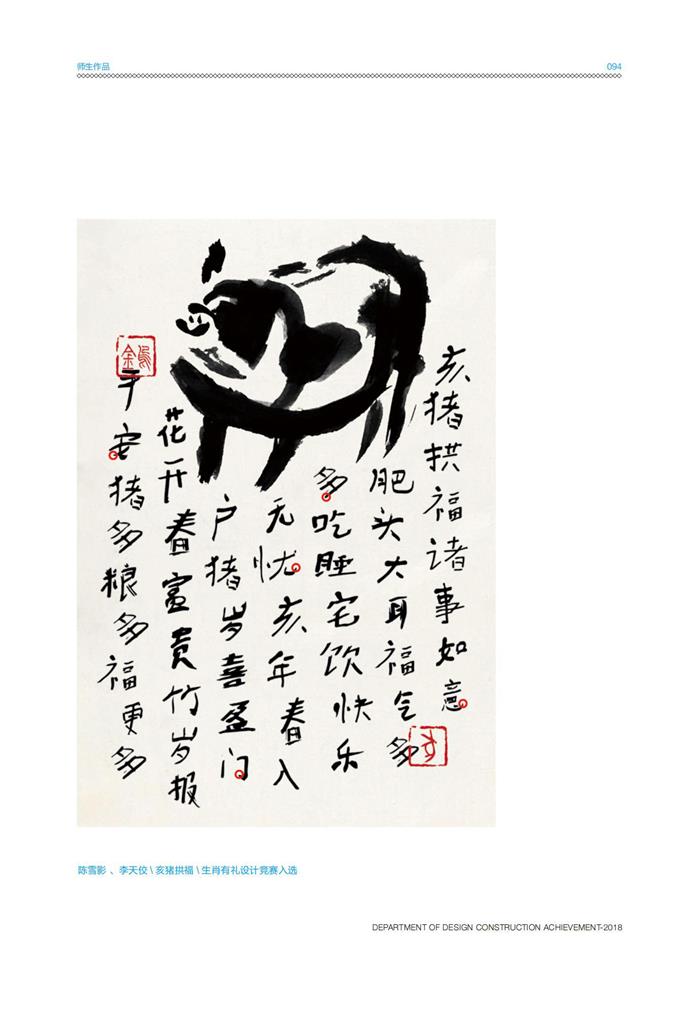 师生作品
094
亥猪拱福诸事如意
肥头大耳福气多
多吃睡宅饮快乐
无忧亥年春入
户猪岁喜盈门
花开春富贵竹岁报
平安猪多粮多福更多
陈雪影 、李天佼 \ 亥猪拱福 \ 生肖有礼设计竞赛入选
DEPARTMENT OF DESIGN CONSTRUCTION ACHIEVEMENT-2018